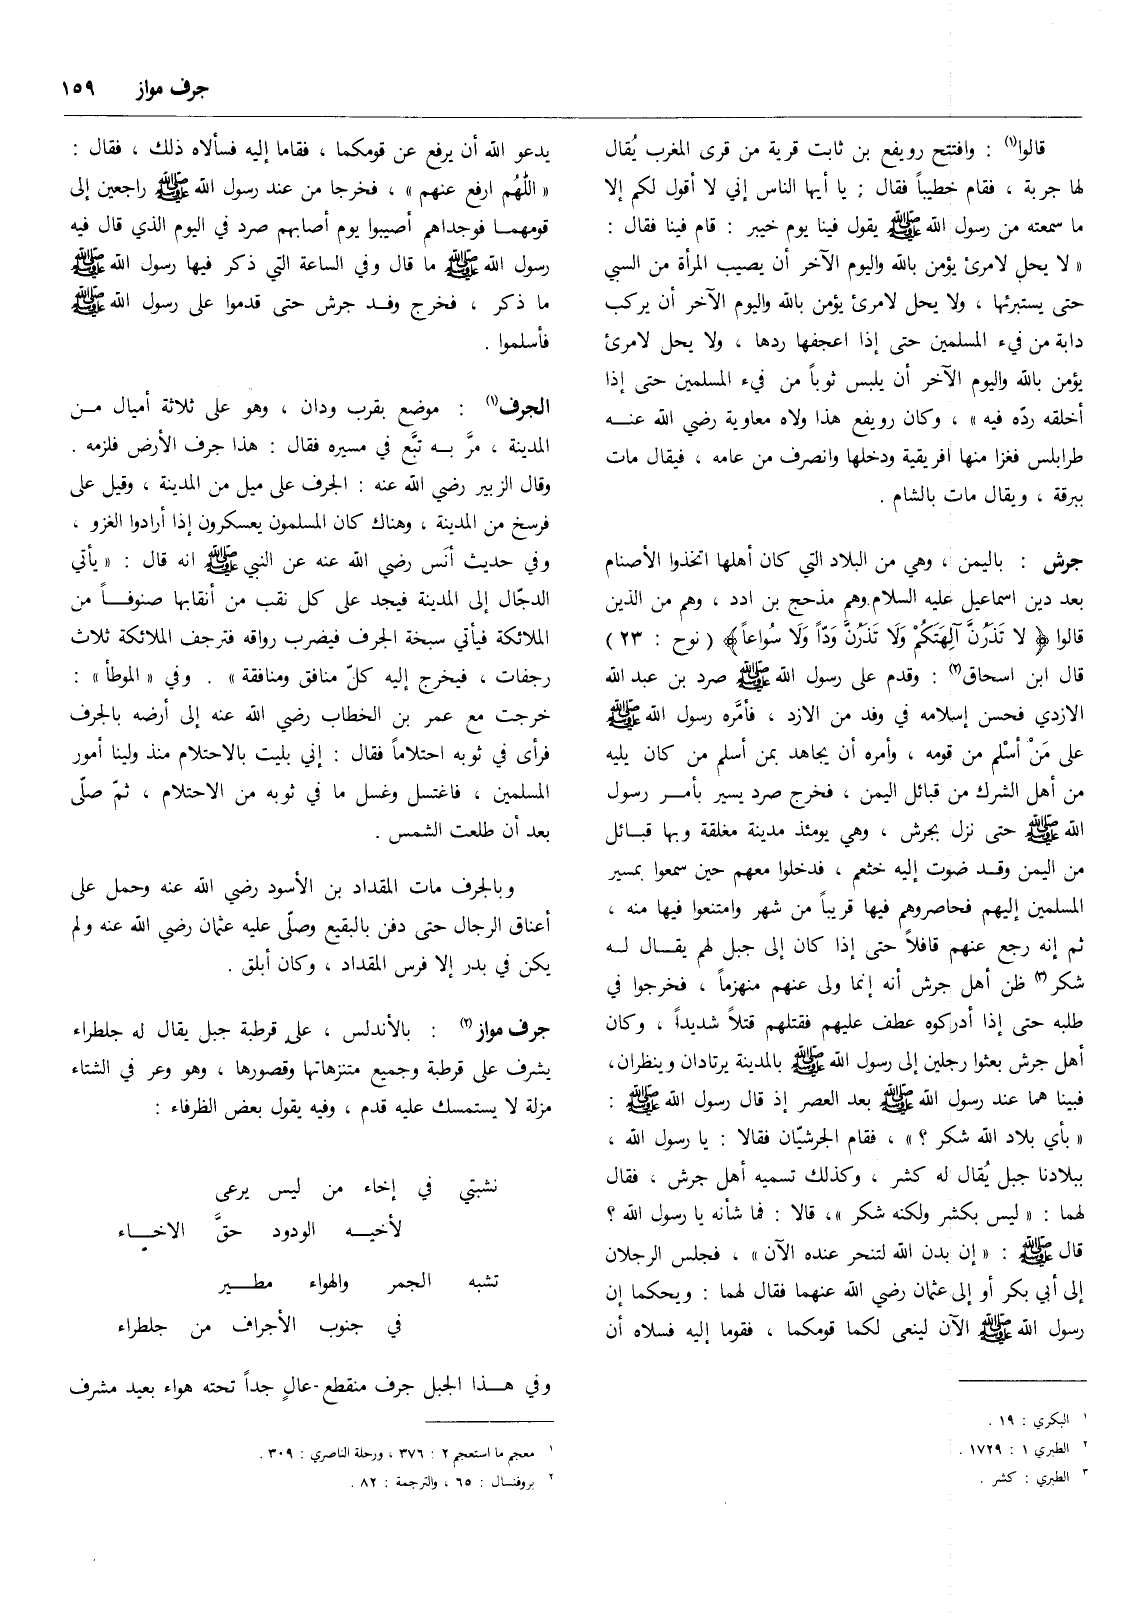 جرف مواز ١٥٩
قالوا(١) : وافتتح رويفع بن ثابت قرية من قرى المغرب يُقال
لها جربة ، فقام خطيباً فقال : يا أيها الناس إني لا أقول لكم إلا
ما سمعته من رسول الله ﷺ يقول فينا يوم خيبر : قام فينا فقال :
« لا يحل لامرئ يؤمن بالله واليوم الآخر أن يصيب المرأة من السبي
حتى يستبرئها ، ولا يحل لامرئ يؤمن بالله واليوم الآخر أن يركب
دابة من فيء المسلمين حتى إذا اعجفها ردها ، ولا يحل لامرئ
يؤمن بالله واليوم الآخر أن يلبس ثوباً من فيء المسلمين حتى إذا
أخلقه ردّه فيه » ، وكان رويفع هذا ولاه معاوية رضي الله عنه
طرابلس فغزا منها افريقية ودخلها وانصرف من عامه ، فيقال مات
ببرقة ، ويقال مات بالشام .
جرش : باليمن ، وهي من البلاد التي كان أهلها اتخذوا الأصنام
بعد دين اسماعيل عليه السلام وهم مذحج بن ادد ، وهم من الذين
قالوا ﴿ لا تَذَرُنَّ آلِهَتَكُمْ وَلَا تَذَرُنَّ وَدّاً وَلَا سُوَاعاً ﴾ ( نوح : ٢٣ )
قال ابن اسحاق(٢) : وقدم على رسول الله ﷺ صرد بن عبد الله
الازدي فحسن إسلامه في وفد من الازد ، فأمَّره رسول الله ﷺ
على مَنْ أسْلم من قومه ، وأمره أن يجاهد بمن أسلم من كان يليه
من أهل الشرك من قبائل اليمن ، فخرج صرد يسير بأمر رسول
الله ﷺ حتى نزل بجرش ، وهي يومئذ مدينة مغلقة وبها قبائل
من اليمن وقد ضوت إليه خثعم ، فدخلوا معهم حين سمعوا بمسير
المسلمين إليهم فحاصروهم فيها قريباً من شهر وامتنعوا فيها منه ،
ثم إنه رجع عنهم قافلاً حتى إذا كان إلى جبل لهم يقال له
شكر(٣) ظن أهل جرش أنه إنما ولى عنهم منهزماً ، فخرجوا في
طلبه حتى إذا أدركوه عطف عليهم فقتلهم قتلاً شديداً ، وكان
أهل جرش بعثوا رجلين إلى رسول الله ﷺ بالمدينة يرتادان وينظران،
فبينا هما عند رسول الله ﷺ بعد العصر إذ قال رسول الله ﷺ :
« بأي بلاد الله شكر ؟ » ، فقام الجرشيّان فقالا : يا رسول الله ،
ببلادنا جبل يُقال له كشر ، وكذلك تسميه أهل جرش ، فقال
لهما : « ليس بكشر ولكنه شكر »، قالا : فما شأنه يا رسول الله ؟
قال ﷺ : « إن بدن الله لتنحر عنده الآن » ، فجلس الرجلان
إلى أبي بكر أو إلى عثمان رضي الله عنهما فقال لهما : ويحكما إن
رسول الله ﷺ الآن لينعى لكما قومكما ، فقوما إليه فسلاه أن
١ البكري : ١٩ .
٢ الطبري ١ : ١٧٢٩ .
٣ الطبري : كشر .
يدعو الله أن يرفع عن قومكما ، فقاما إليه فسألاه ذلك ، فقال :
« اللّهُم ارفع عنهم » ، فخرجا من عند رسول الله ﷺ راجعين إلى
قومهما فوجداهم أصيبوا يوم أصابهم صرد في اليوم الذي قال فيه
رسول الله ﷺ ما قال وفي الساعة التي ذكر فيها رسول الله ﷺ
ما ذكر ، فخرج وفد جرش حتى قدموا على رسول الله ﷺ
فأسلموا .
الجرف(١) : موضع بقرب ودان ، وهو على ثلاثة أميال من
المدينة ، مرَّ به تبَّع في مسيره فقال : هذا جرف الأرض فلزمه .
وقال الزبير رضي الله عنه : الجرف على ميل من المدينة ، وقيل على
فرسخ من المدينة ، وهناك كان المسلمون يعسكرون إذا أرادوا الغزو ،
وفي حديث أنَس رضي الله عنه عن النبي ﷺ انه قال : « يأتي
الدجّال إلى المدينة فيجد على كل نقب من أنقابها صنوفاً من
الملائكة فيأتي سبخة الجرف فيضرب رواقه فترجف الملائكة ثلاث
رجفات ، فيخرج إليه كلّ منافق ومنافقة » . وفي « الموطأ » :
خرجت مع عمر بن الخطاب رضي الله عنه إلى أرضه بالجرف
فرأى في ثوبه احتلاماً فقال : إني بليت بالاحتلام منذ ولينا أمور
المسلمين ، فاغتسل وغسل ما في ثوبه من الاحتلام ، ثمّ صلّى
بعد أن طلعت الشمس .
وبالجرف مات المقداد بن الأسود رضي الله عنه وحمل على
أعناق الرجال حتى دفن بالبقيع وصلّى عليه عثمان رضي الله عنه ولم
يكن في بدر إلا فرس المقداد ، وكان أبلق .
جرف مواز(٢) : بالأندلس ، على قرطبة جبل يقال له جلطراء
يشرف على قرطبة وجميع متنزهاتها وقصورها ، وهو وعر في الشتاء
مزلة لا يستمسك عليه قدم ، وفيه يقول بعض الظرفاء :
نشبتي في إخاء من ليس يرعى
لأخيه الودود حقَّ الاخاء
تشبه الجمر والهواء مطير
في جنوب الأجراف من جلطراء
وفي هذا الجبل جرف منقطع عالٍ جداً تحته هواء بعيد مشرف
١ معجم ما استعجم ٢ : ٣٧٦ ، ورحلة الناصري : ٣٠٩ .
٢ بروفنسال : ٦٥ ، والترجمة : ٨٢ .